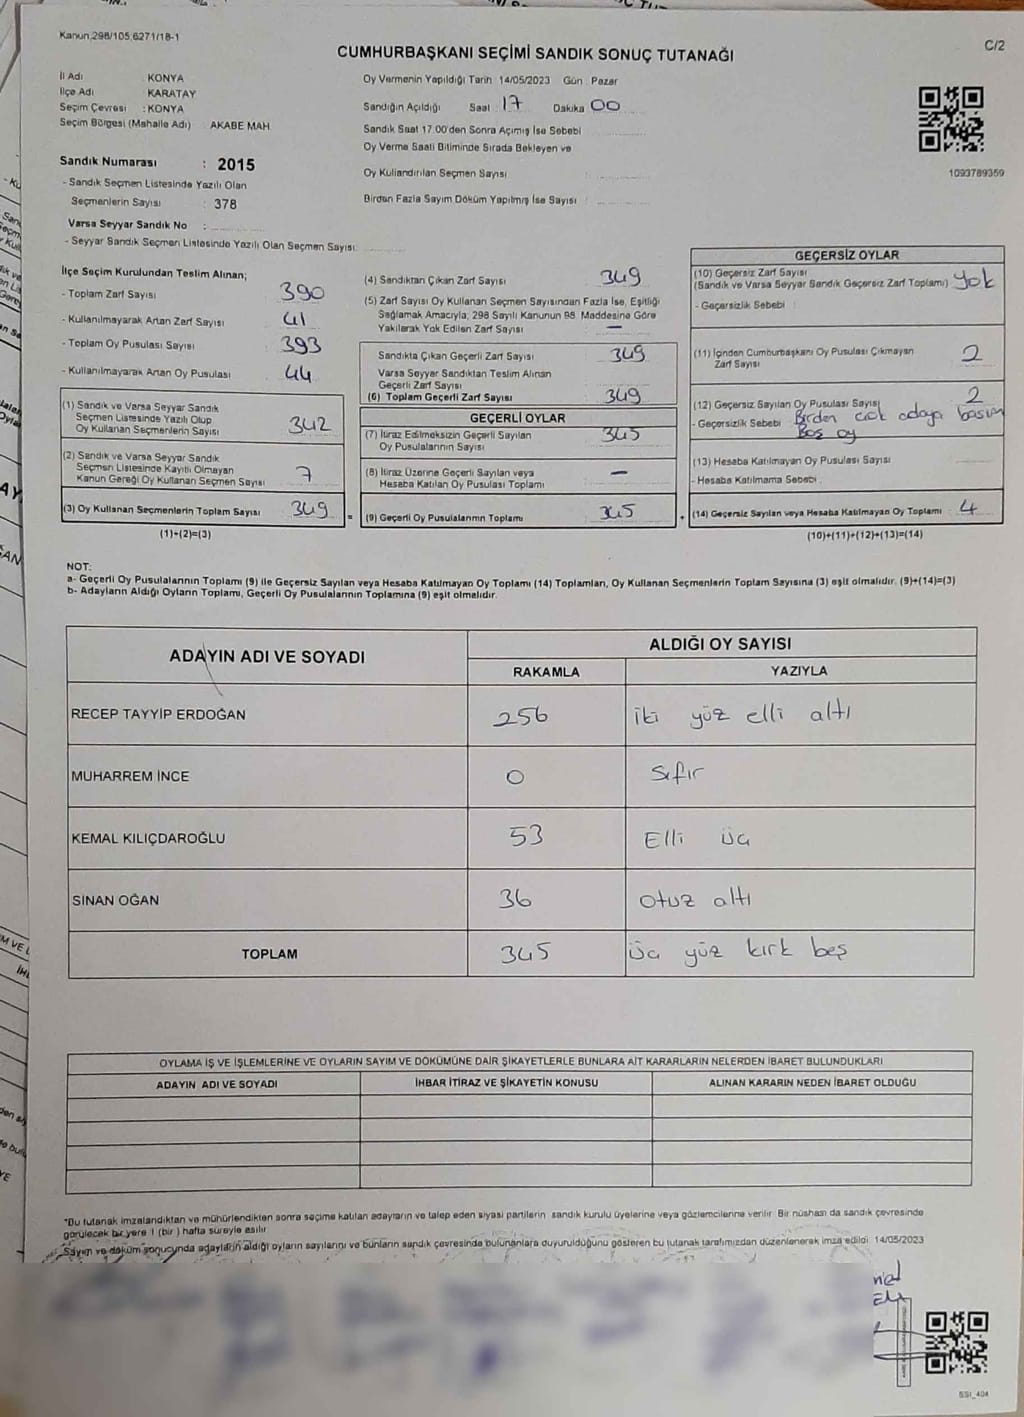 Kanun, 298/105,6271/18-1
C/2
CUMHURBAŞKANI SEÇİMİ SANDIK SONUÇ TUTANAĞI
İl Adı KONYA
İlçe Adı KARATAY
Seçim Çevresi : KONYA
Seçim Bölgesi (Mahalle Adı) AKABE MAH
Oy Vermenin Yapıldığı Tarih 14/05/2023 Gün : Pazar
Sandığın Açıldığı Saat 17 Dakika 00
Sandık Saat 17.00'den Sonra Açımış İse Sebebi
Oy Verme Saati Bitiminde Sırada Bekleyen ve
Oy Kullandırılan Seçmen Sayısı
Birden Fazla Sayım Döküm Yapılmış İse Sayısı :
1093789359
Sandık Numarası : 2015
- Sandık Seçmen Listesinde Yazılı Olan
Seçmenlerin Sayısı : 378
Varsa Seyyar Sandık No :
- Seyyar Sandık Seçmen Listesinde Yazılı Olan Seçmen Sayısı:
İlçe Seçim Kurulundan Teslim Alınan;
- Toplam Zarf Sayısı 390
- Kullanılmayarak Artan Zarf Sayısı 41
- Toplam Oy Pusulası Sayısı 393
- Kullanılmayarak Artan Oy Pusulası 44
(1) Sandık ve Varsa Seyyar Sandık
Seçmen Listesinde Yazılı Olup
Oy Kullanan Seçmenlerin Sayısı 342
(2) Sandık ve Varsa Seyyar Sandık
Seçmen Listesinde Kayıtlı Olmayan
Kanun Gereği Oy Kullanan Seçmen Sayısı 7
(3) Oy Kullanan Seçmenlerin Toplam Sayısı 349 =
(1)+(2)=(3)
(4) Sandıktan Çıkan Zarf Sayısı 349
(5) Zarf Sayısı Oy Kullanan Seçmen Sayısından Fazla İse, Eşitliği
Sağlamak Amacıyla, 298 Sayılı Kanunun 98. Maddesine Göre
Yakılarak Yok Edilen Zarf Sayısı —
Sandıkta Çıkan Geçerli Zarf Sayısı 349
Varsa Seyyar Sandıktan Teslim Alınan
Geçerli Zarf Sayısı
(6) Toplam Geçerli Zarf Sayısı 349
GEÇERLİ OYLAR
(7) İtiraz Edilmeksizin Geçerli Sayılan 345
Oy Pusulalarının Sayısı
(8) İtiraz Üzerine Geçerli Sayılan veya —
Hesaba Katılan Oy Pusulası Toplamı
(9) Geçerli Oy Pusulalarının Toplamı 345 +
GEÇERSİZ OYLAR
(10) Geçersiz Zarf Sayısı
(Sandık ve Varsa Seyyar Sandık Geçersiz Zarf Toplamı) Yok
- Geçersizlik Sebebi :
(11) İçinden Cumhurbaşkanı Oy Pusulası Çıkmayan 2
Zarf Sayısı
(12) Geçersiz Sayılan Oy Pusulası Sayısı 2
- Geçersizlik Sebebi Birden çok adaya basım
Boş oy
(13) Hesaba Katılmayan Oy Pusulası Sayısı
- Hesaba Katılmama Sebebi :
(14) Geçersiz Sayılan veya Hesaba Katılmayan Oy Toplamı : 4
(10)+(11)+(12)+(13)=(14)
NOT:
a- Geçerli Oy Pusulalarının Toplamı (9) ile Geçersiz Sayılan veya Hesaba Katılmayan Oy Toplamı (14) Toplamları, Oy Kullanan Seçmenlerin Toplam Sayısına (3) eşit olmalıdır. (9)+(14)=(3)
b- Adayların Aldığı Oyların Toplamı, Geçerli Oy Pusulalarının Toplamına (9) eşit olmalıdır.
ADAYIN ADI VE SOYADI
ALDIĞI OY SAYISI
RAKAMLA YAZIYLA
RECEP TAYYİP ERDOĞAN 256 iki yüz elli altı
MUHARREM İNCE 0 Sıfır
KEMAL KILIÇDAROĞLU 53 Elli üç
SİNAN OĞAN 36 Otuz altı
TOPLAM 345 üç yüz kırk beş
OYLAMA İŞ VE İŞLEMLERİNE VE OYLARIN SAYIM VE DÖKÜMÜNE DAİR ŞİKAYETLERLE BUNLARA AİT KARARLARIN NELERDEN İBARET BULUNDUKLARI
ADAYIN ADI VE SOYADI İHBAR İTİRAZ VE ŞİKAYETİN KONUSU ALINAN KARARIN NEDEN İBARET OLDUĞU
"Bu tutanak imzalandıktan ve mühürlendikten sonra seçime katılan adayların ve talep eden siyasi partilerin sandık kurulu üyelerine veya gözlemcilerine verilir. Bir nüshası da sandık çevresinde
görülecek bir yere 1 (bir ) hafta süreyle asılır
Sayım ve döküm sonucunda adayların aldığı oyların sayılarını ve bunların sandık çevresinde bulunanlara duyurulduğunu gösteren bu tutanak tarafımızdan düzenlenerek imza edildi. 14/05/2023
SSI_404